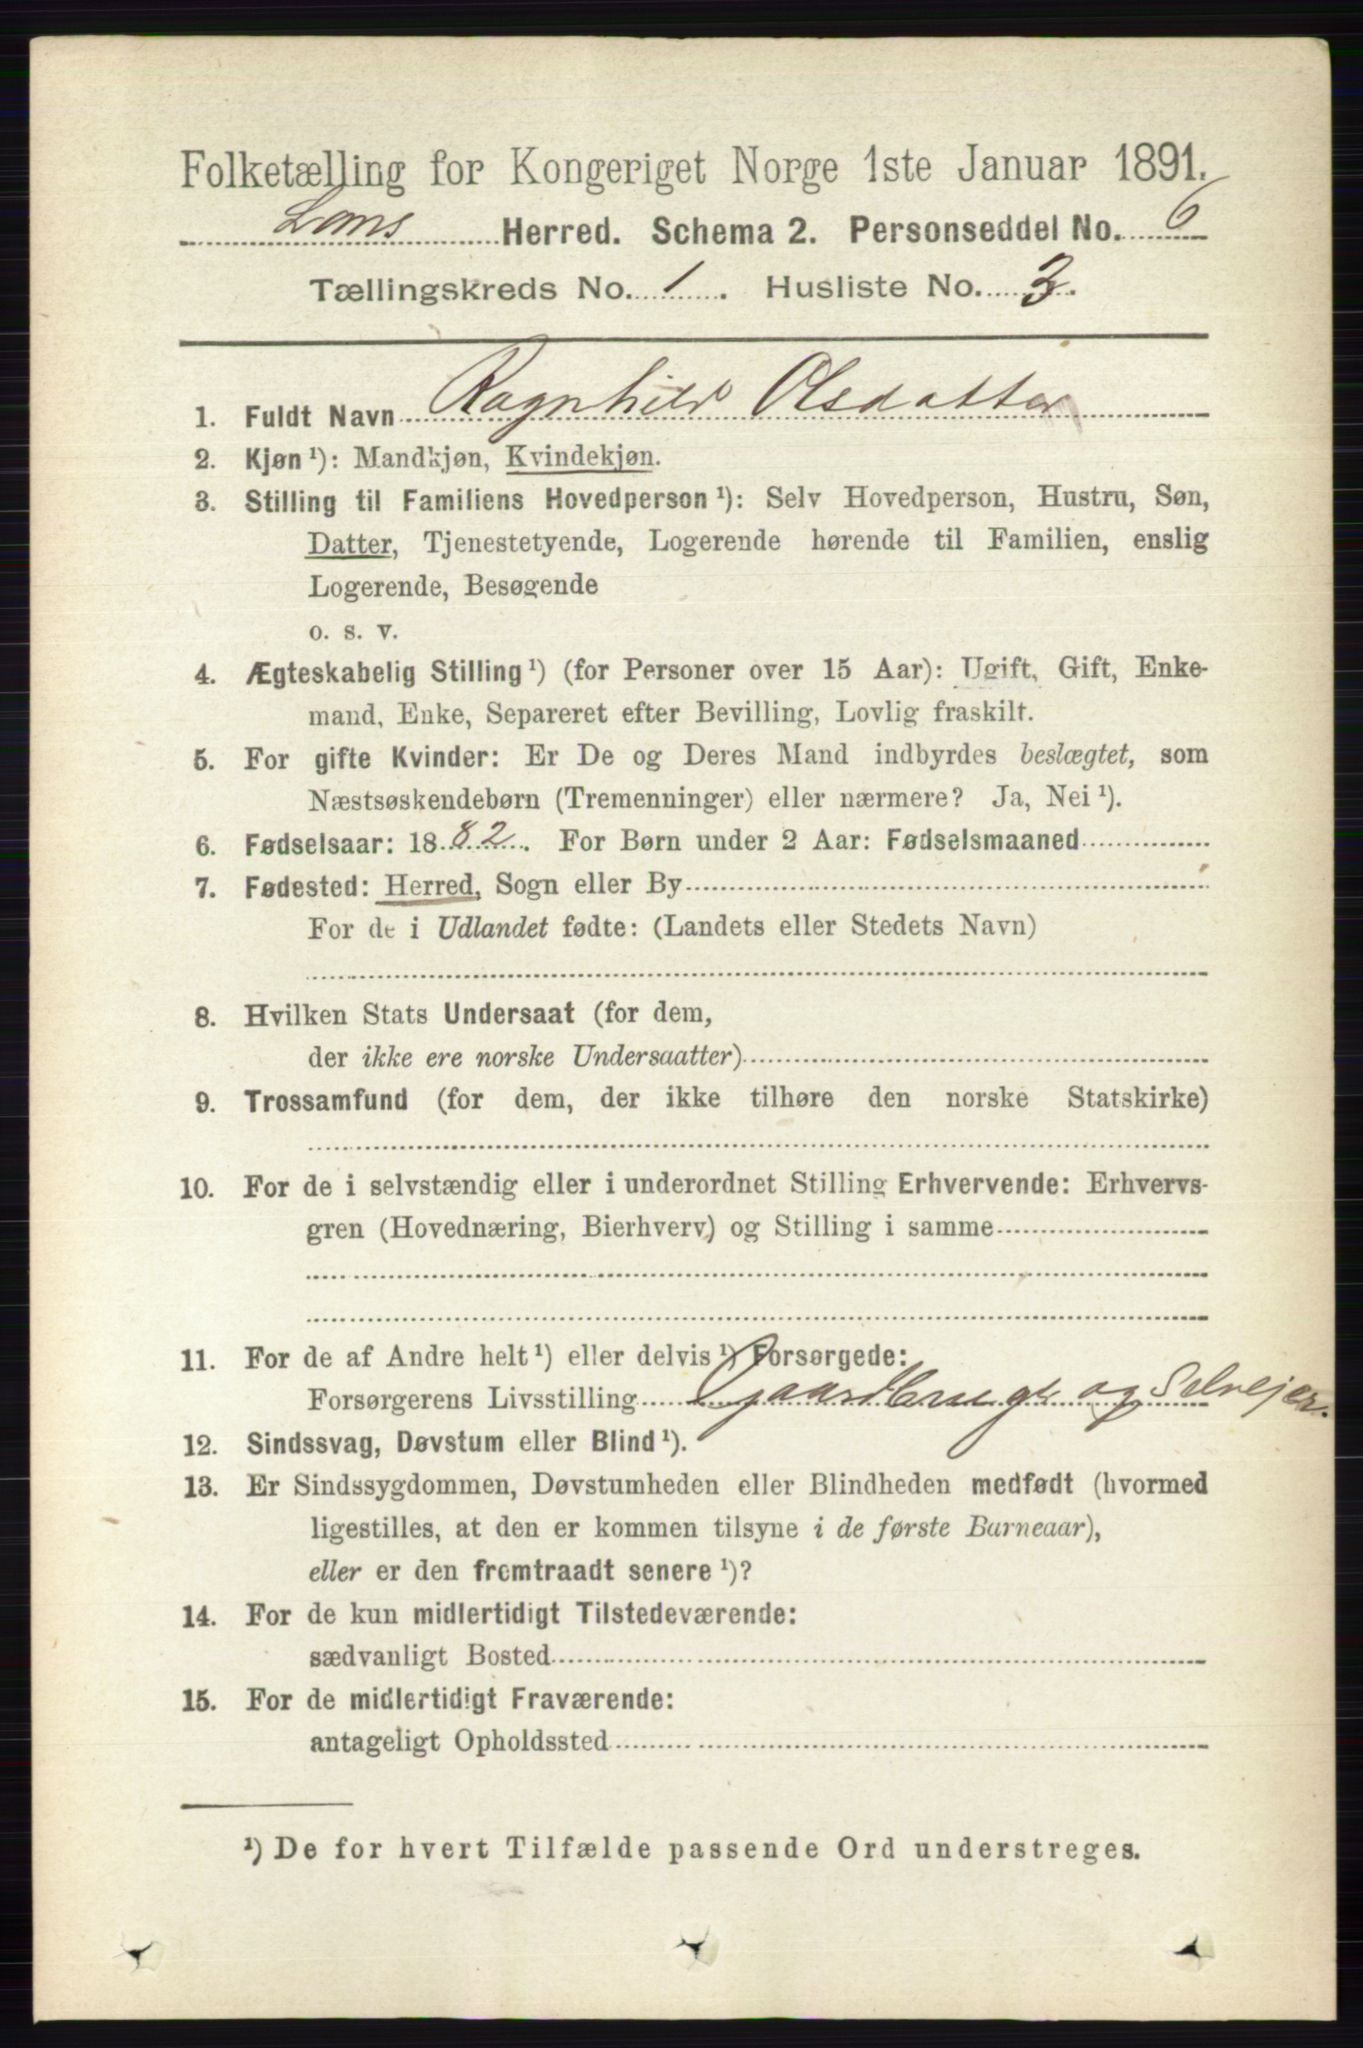 Folketælling for Kongeriget Norge 1ste Januar 1891.
Loms Herred. Schema 2. Personseddel No. 6
Tællingskreds No. 1. Husliste No. 3.
1. Fuldt Navn Ragnhild Olsdatter
2. Kjøn ¹): Mandkjøn, Kvindekjøn.
3. Stilling til Familiens Hovedperson ¹): Selv Hovedperson, Hustru, Søn,
Datter, Tjenestetyende, Logerende hørende til Familien, enslig
Logerende, Besøgende
o. s. v.
4. Ægteskabelig Stilling ¹) (for Personer over 15 Aar): Ugift, Gift, Enke-
mand, Enke, Separeret efter Bevilling, Lovlig fraskilt.
5. For gifte Kvinder: Er De og Deres Mand indbyrdes beslægtet, som
Næstsøskendebørn (Tremenninger) eller nærmere? Ja, Nei ¹).
6. Fødselsaar: 1882. For Børn under 2 Aar: Fødselsmaaned
7. Fødested: Herred, Sogn eller By
For de i Udlandet fødte: (Landets eller Stedets Navn)
8. Hvilken Stats Undersaat (for dem,
der ikke ere norske Undersaatter)
9. Trossamfund (for dem, der ikke tilhøre den norske Statskirke)
10. For de i selvstændig eller i underordnet Stilling Erhvervende: Erhvervs-
gren (Hovednæring, Bierhverv) og Stilling i samme
11. For de af Andre helt ¹) eller delvis ¹) Forsørgede:
Forsørgerens Livsstilling Gaardbruger og Selveier.
12. Sindssvag, Døvstum eller Blind ¹).
13. Er Sindssygdommen, Døvstumheden eller Blindheden medfødt (hvormed
ligestilles, at den er kommen tilsyne i de første Barneaar),
eller er den fremtraadt senere ¹)?
14. For de kun midlertidigt Tilstedeværende:
sædvanligt Bosted
15. For de midlertidigt Fraværende:
antageligt Opholdssted
¹) De for hvert Tilfælde passende Ord understreges.